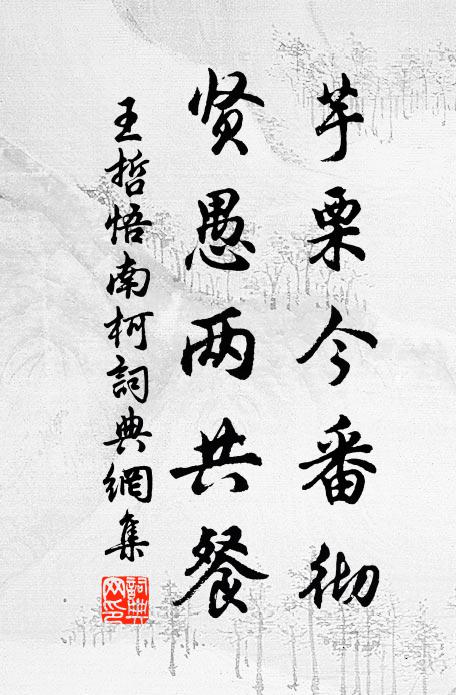 芋栗今番彻
贤愚两共餐
王哲悟南柯詞典網集
詞典